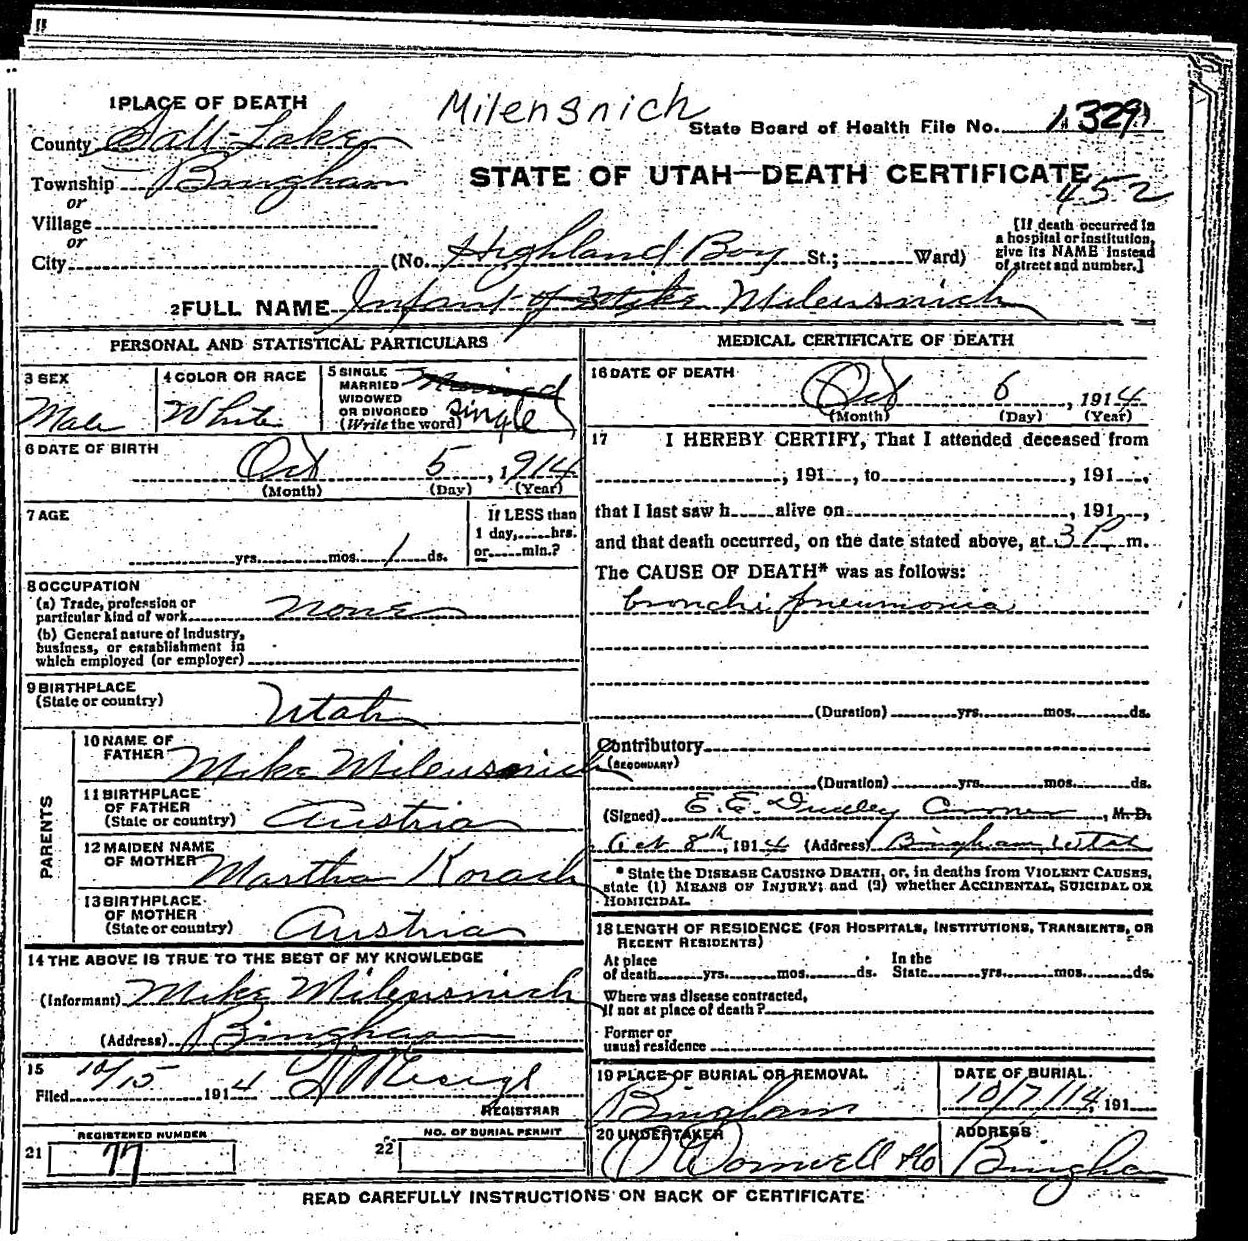 1 PLACE OF DEATH
Milensnich
County Salt Lake
State Board of Health File No. 1329
Township Bingham
STATE OF UTAH—DEATH CERTIFICATE
452
or
Village
or
City (No. Highland Boy St.; Ward)
[If death occurred in a hospital or institution, give its NAME instead of street and number.]
2 FULL NAME Infant of Mike Milensnich
PERSONAL AND STATISTICAL PARTICULARS
3 SEX
Male
4 COLOR OR RACE
White
5 SINGLE
MARRIED
WIDOWED
OR DIVORCED
(Write the word)
Married
Single
6 DATE OF BIRTH
Oct 5, 1914
(Month) (Day) (Year)
7 AGE
yrs. mos. 1 ds.
If LESS than
1 day, hrs.
or min.?
8 OCCUPATION
(a) Trade, profession or
particular kind of work None
(b) General nature of Industry,
business, or establishment in
which employed (or employer)
9 BIRTHPLACE
(State or country)
Utah
PARENTS
10 NAME OF
FATHER Mike Milensnich
11 BIRTHPLACE
OF FATHER
(State or country) Austria
12 MAIDEN NAME
OF MOTHER Martha Korach
13 BIRTHPLACE
OF MOTHER
(State or country) Austria
14 THE ABOVE IS TRUE TO THE BEST OF MY KNOWLEDGE
(Informant) Mike Milensnich
(Address) Bingham
15
Filed 10/15 1914
REGISTRAR
REGISTERED NUMBER
21 77
NO. OF BURIAL PERMIT
22
MEDICAL CERTIFICATE OF DEATH
16 DATE OF DEATH
Oct 6, 1914
(Month) (Day) (Year)
17 I HEREBY CERTIFY, That I attended deceased from
, 191 , to , 191 ,
that I last saw h alive on , 191 ,
and that death occurred, on the date stated above, at 3 P. m.
The CAUSE OF DEATH* was as follows:
bronchi pneumonia
(Duration) yrs. mos. ds.
Contributory
(SECONDARY)
(Duration) yrs. mos. ds.
(Signed) E. E. Dudley Coroner, M. D.
Oct 8th, 1914 (Address) Bingham, Utah
* State the DISEASE CAUSING DEATH, or, in deaths from VIOLENT CAUSES,
state (1) MEANS OF INJURY; and (2) whether ACCIDENTAL, SUICIDAL OR
HOMICIDAL.
18 LENGTH OF RESIDENCE (FOR HOSPITALS, INSTITUTIONS, TRANSIENTS, OR
RECENT RESIDENTS)
At place
of death yrs. mos. ds.
In the
State yrs. mos. ds.
Where was disease contracted,
if not at place of death?
Former or
usual residence
19 PLACE OF BURIAL OR REMOVAL
Bingham
DATE OF BURIAL
10/7/14, 191
20 UNDERTAKER
O'Donnell & Co
ADDRESS
Bingham
READ CAREFULLY INSTRUCTIONS ON BACK OF CERTIFICATE